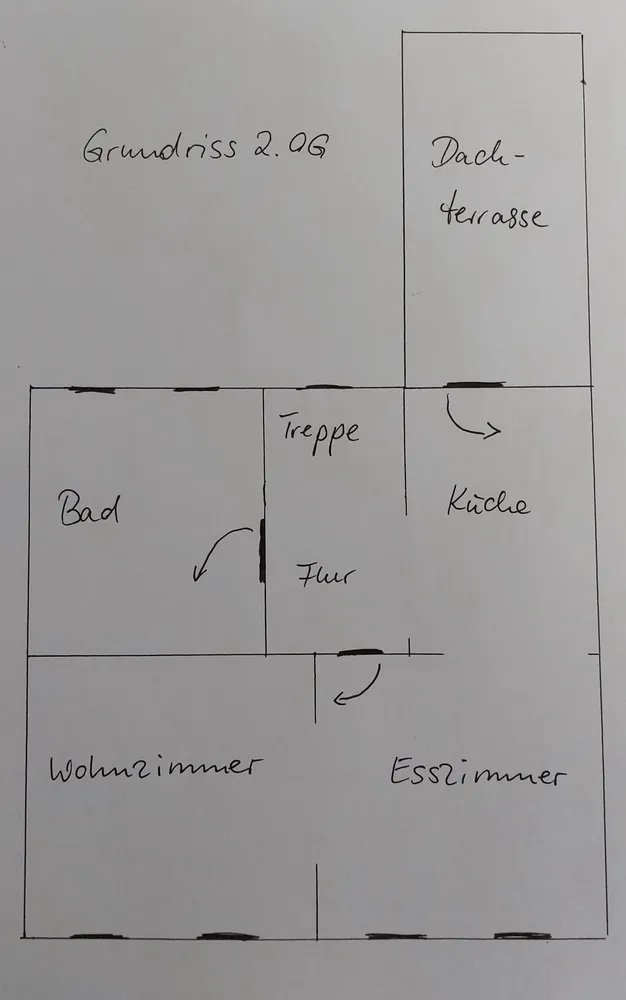 Grundriss 2.OG
Dach-
terrasse
Treppe
Bad
Küche
Flur
Wohnzimmer
Esszimmer